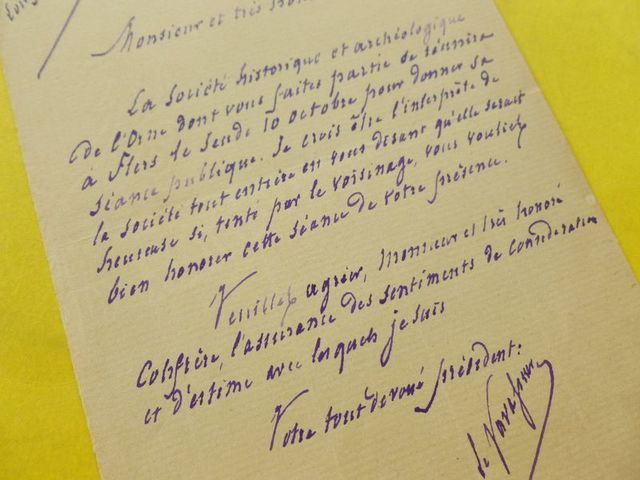 Monsieur et très hon
La Société historique et archéologique
de l'Orne dont vous faites partie se réunira
à Flers le Jeudi 10 octobre pour donner sa
séance publique. Je crois être l'interprète de
la société tout entière en vous disant qu'elle serait
heureuse si, tenté par le voisinage, vous vouliez
bien honorer cette séance de votre présence.
Veuillez agréer, Monsieur et très honoré
Confrère, l'assurance des sentiments de considération
et d'estime avec lesquels je suis
Votre tout dévoué président:
de